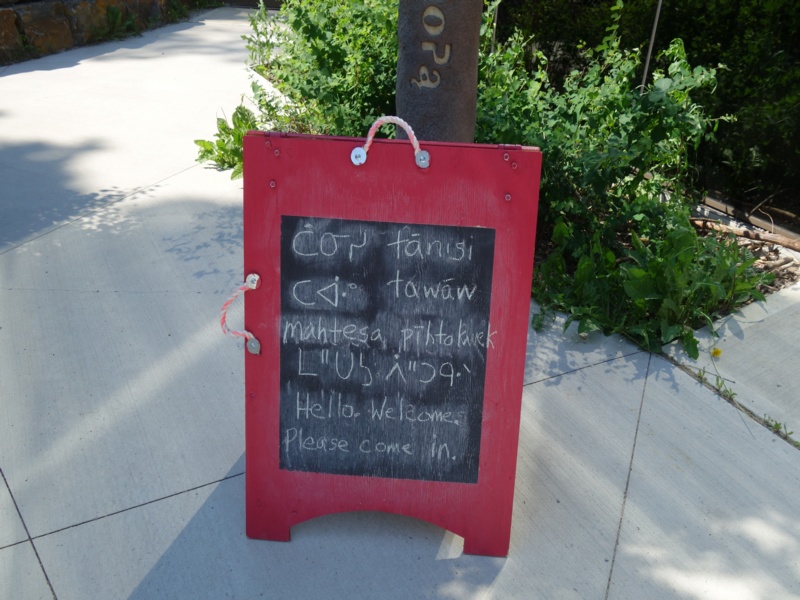 ᑖᓂᓯ tānisi
ᑕᐚᐤ tawāw
mahtesa pīhtokwek
ᒪᐦᑌᓴ ᐲᐦᑐᑫᐧᐠ
Hello. Welcome.
Please come in.